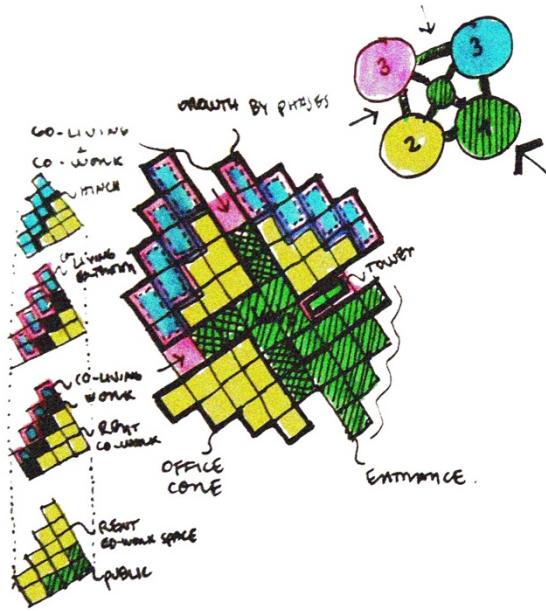 3
3
2
1
GROWTH BY PHASES
CO-LIVING
+
CO-WORK
LIVING
TOWER
CO-LIVING
WORK
RENT
CO-WORK
OFFICE
CORE
ENTRANCE.
RENT
CO-WORK SPACE
PUBLIC